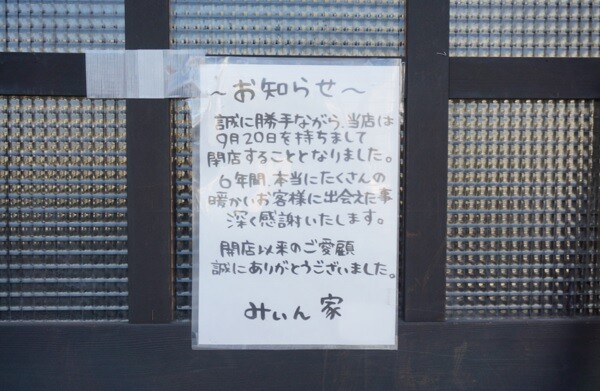 ～お知らせ～
誠に勝手ながら、当店は
9月20日を持ちまして
閉店することとなりました。
6年間、本当にたくさんの
暖かいお客様に出会えた事
深く感謝いたします。
開店以来のご愛顧
誠にありがとうございました。
みぃん家